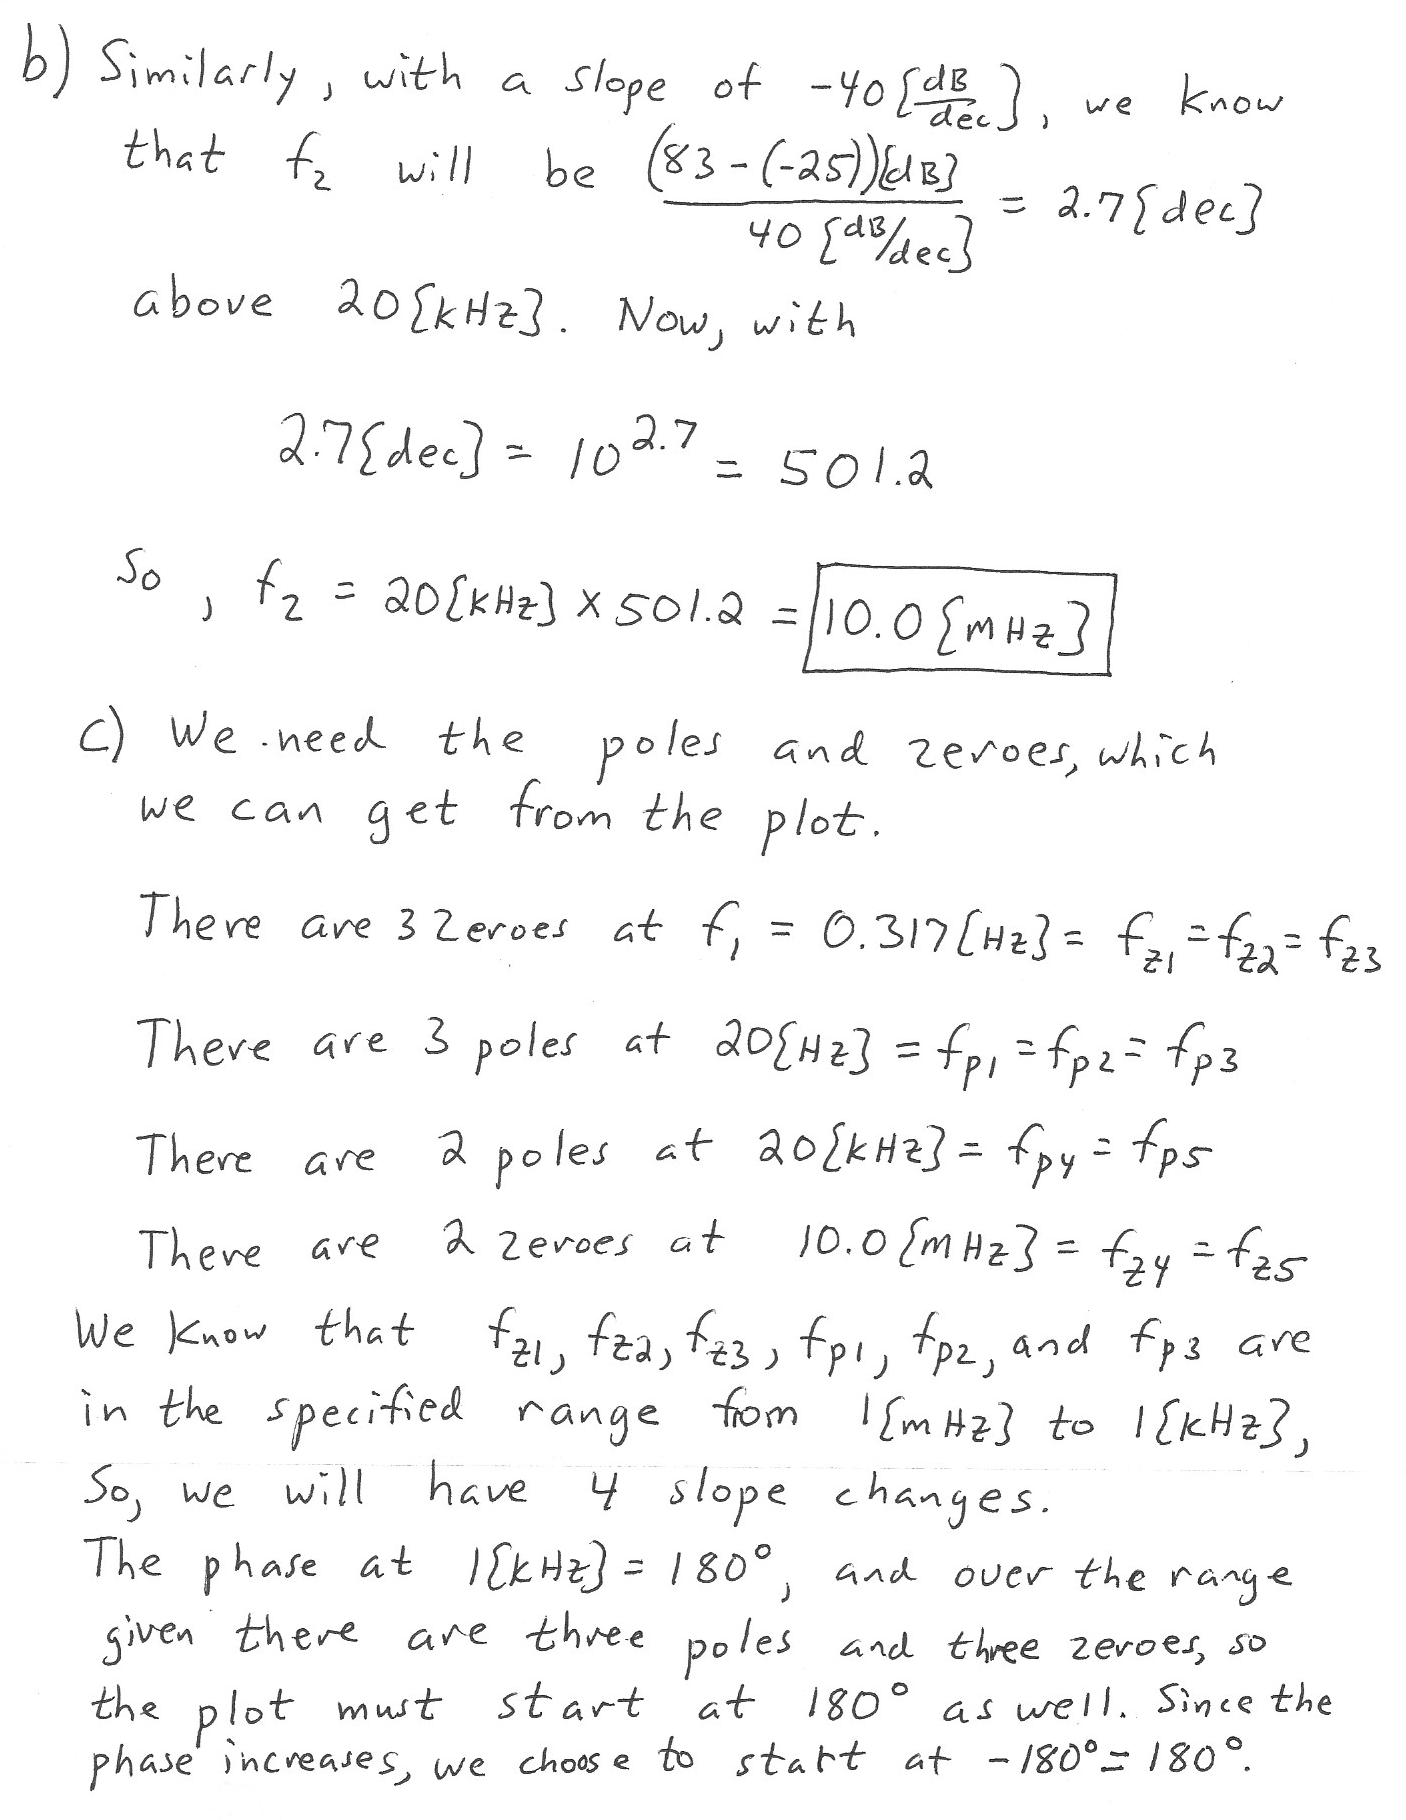 b) Similarly, with a slope of -40 [dB/dec], we know
that f₂ will be (83-(-25))[dB] / 40 [dB/dec] = 2.7[dec]
above 20[kHz]. Now, with
2.7[dec] = 10^2.7 = 501.2
So, f₂ = 20[kHz] × 501.2 = 10.0 [MHz]
c) We need the poles and zeroes, which
we can get from the plot.
There are 3 zeroes at f₁ = 0.317[Hz] = fz1 = fz2 = fz3
There are 3 poles at 20[Hz] = fp1 = fp2 = fp3
There are 2 poles at 20[kHz] = fp4 = fp5
There are 2 zeroes at 10.0 [MHz] = fz4 = fz5
We know that fz1, fz2, fz3, fp1, fp2, and fp3 are
in the specified range from 1[mHz] to 1[kHz],
So, we will have 4 slope changes.
The phase at 1[kHz] = 180°, and over the range
given there are three poles and three zeroes, so
the plot must start at 180° as well. Since the
phase increases, we choose to start at -180° = 180°.